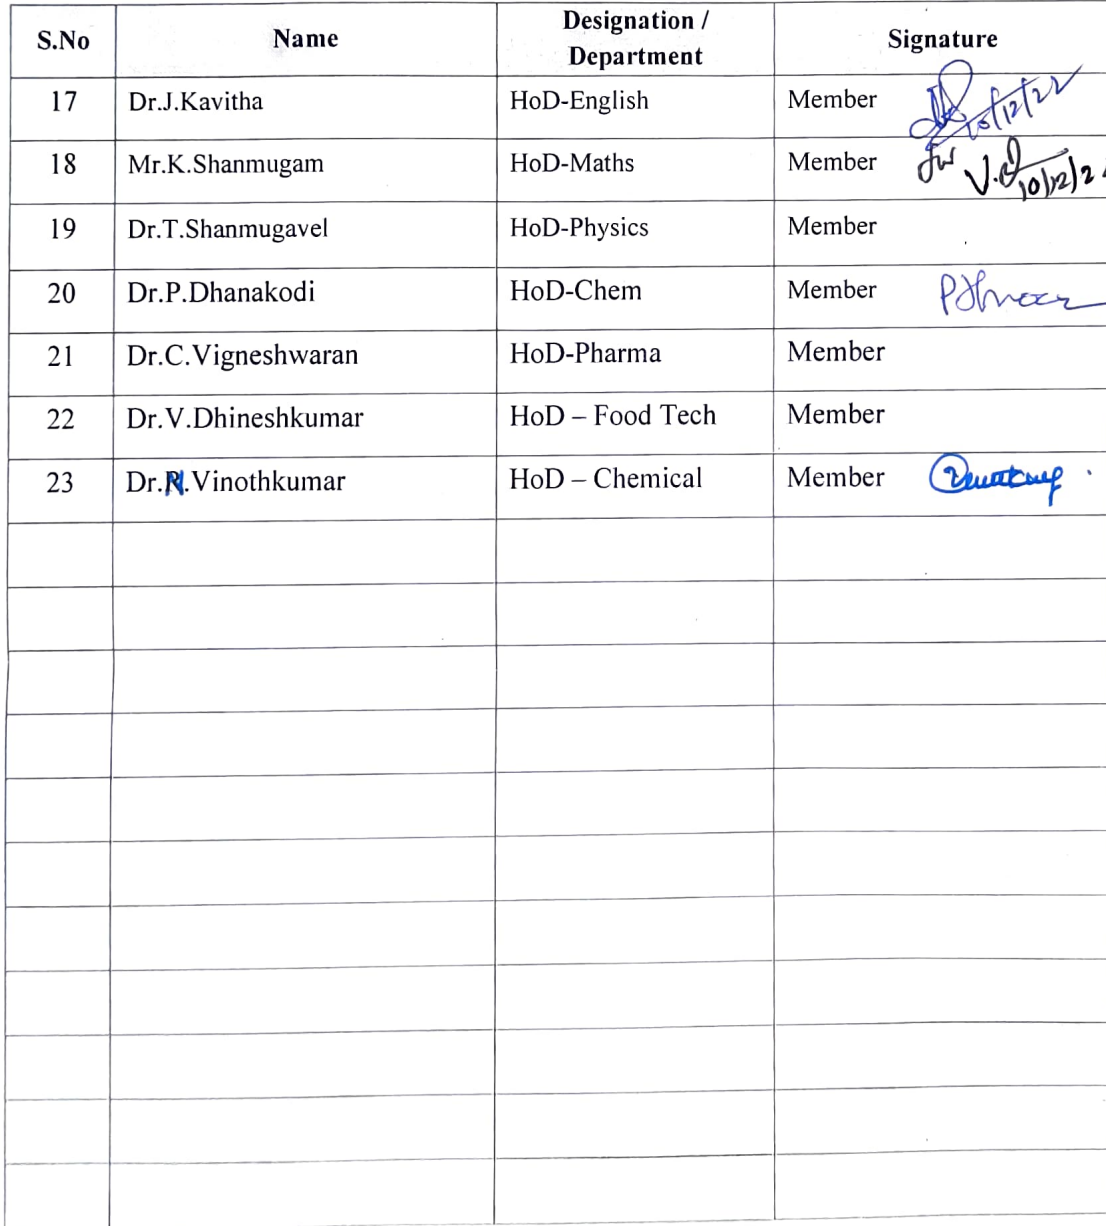 S.No Name Designation / Department Signature
17 Dr.J.Kavitha HoD-English Member 10/12/22
18 Mr.K.Shanmugam HoD-Maths Member for V. 10/12/2
19 Dr.T.Shanmugavel HoD-Physics Member
20 Dr.P.Dhanakodi HoD-Chem Member
21 Dr.C.Vigneshwaran HoD-Pharma Member
22 Dr.V.Dhineshkumar HoD – Food Tech Member
23 Dr.N.Vinothkumar HoD – Chemical Member